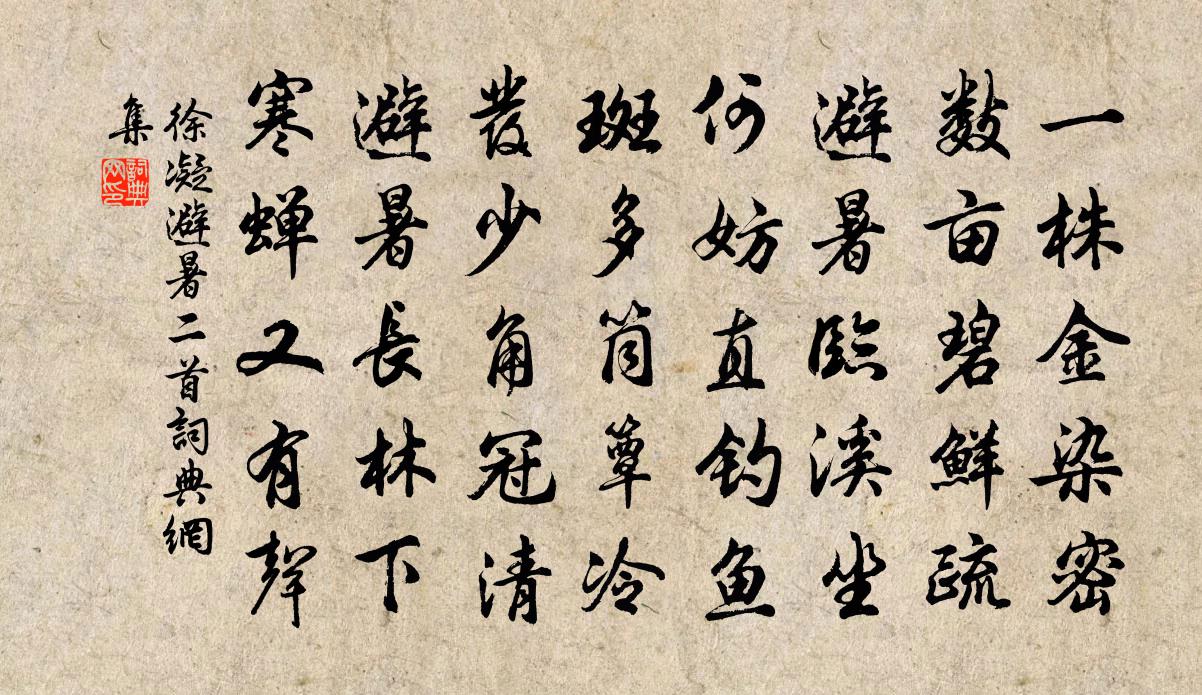 一株金染密
数亩碧鲜疏
避暑臨溪坐
何妨直钓鱼
斑多筒簟冷
发少角冠清
避暑長林下
寒蝉又有聲
徐凝避暑二首詞典網
集
詞典
网印